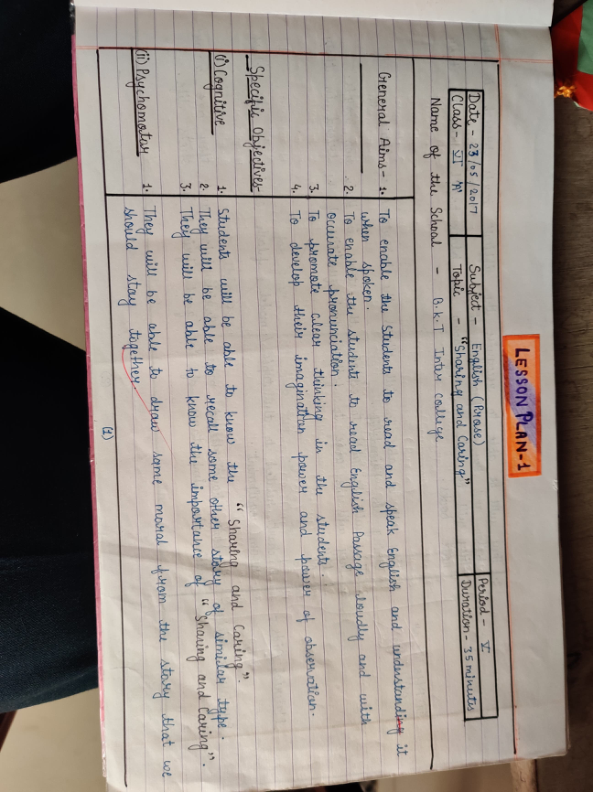 LESSON PLAN-1
Date - 23/05/2017 Subject - English (Prose) Period - V
Class - VI 'A' Topic - "Sharing and Caring" Duration - 35 minutes
Name of the School - B.K.T Inter College
General Aims - 1. To enable the Students to read and speak English and understanding it
when spoken.
2. To enable the students to read English Passage loudly and with
accurate pronunciation.
3. To promote clear thinking in the students.
4. To develop their imagination power and power of observation.
Specific Objectives-
(i) Cognitive 1. Students will be able to know the "Sharing and Caring".
2. They will be able to recall some other story of similar type.
3. They will be able to know the importance of "Sharing and Caring".
(ii) Psychomotor 1. They will be able to draw some moral from the story that we
should stay together.
(1)